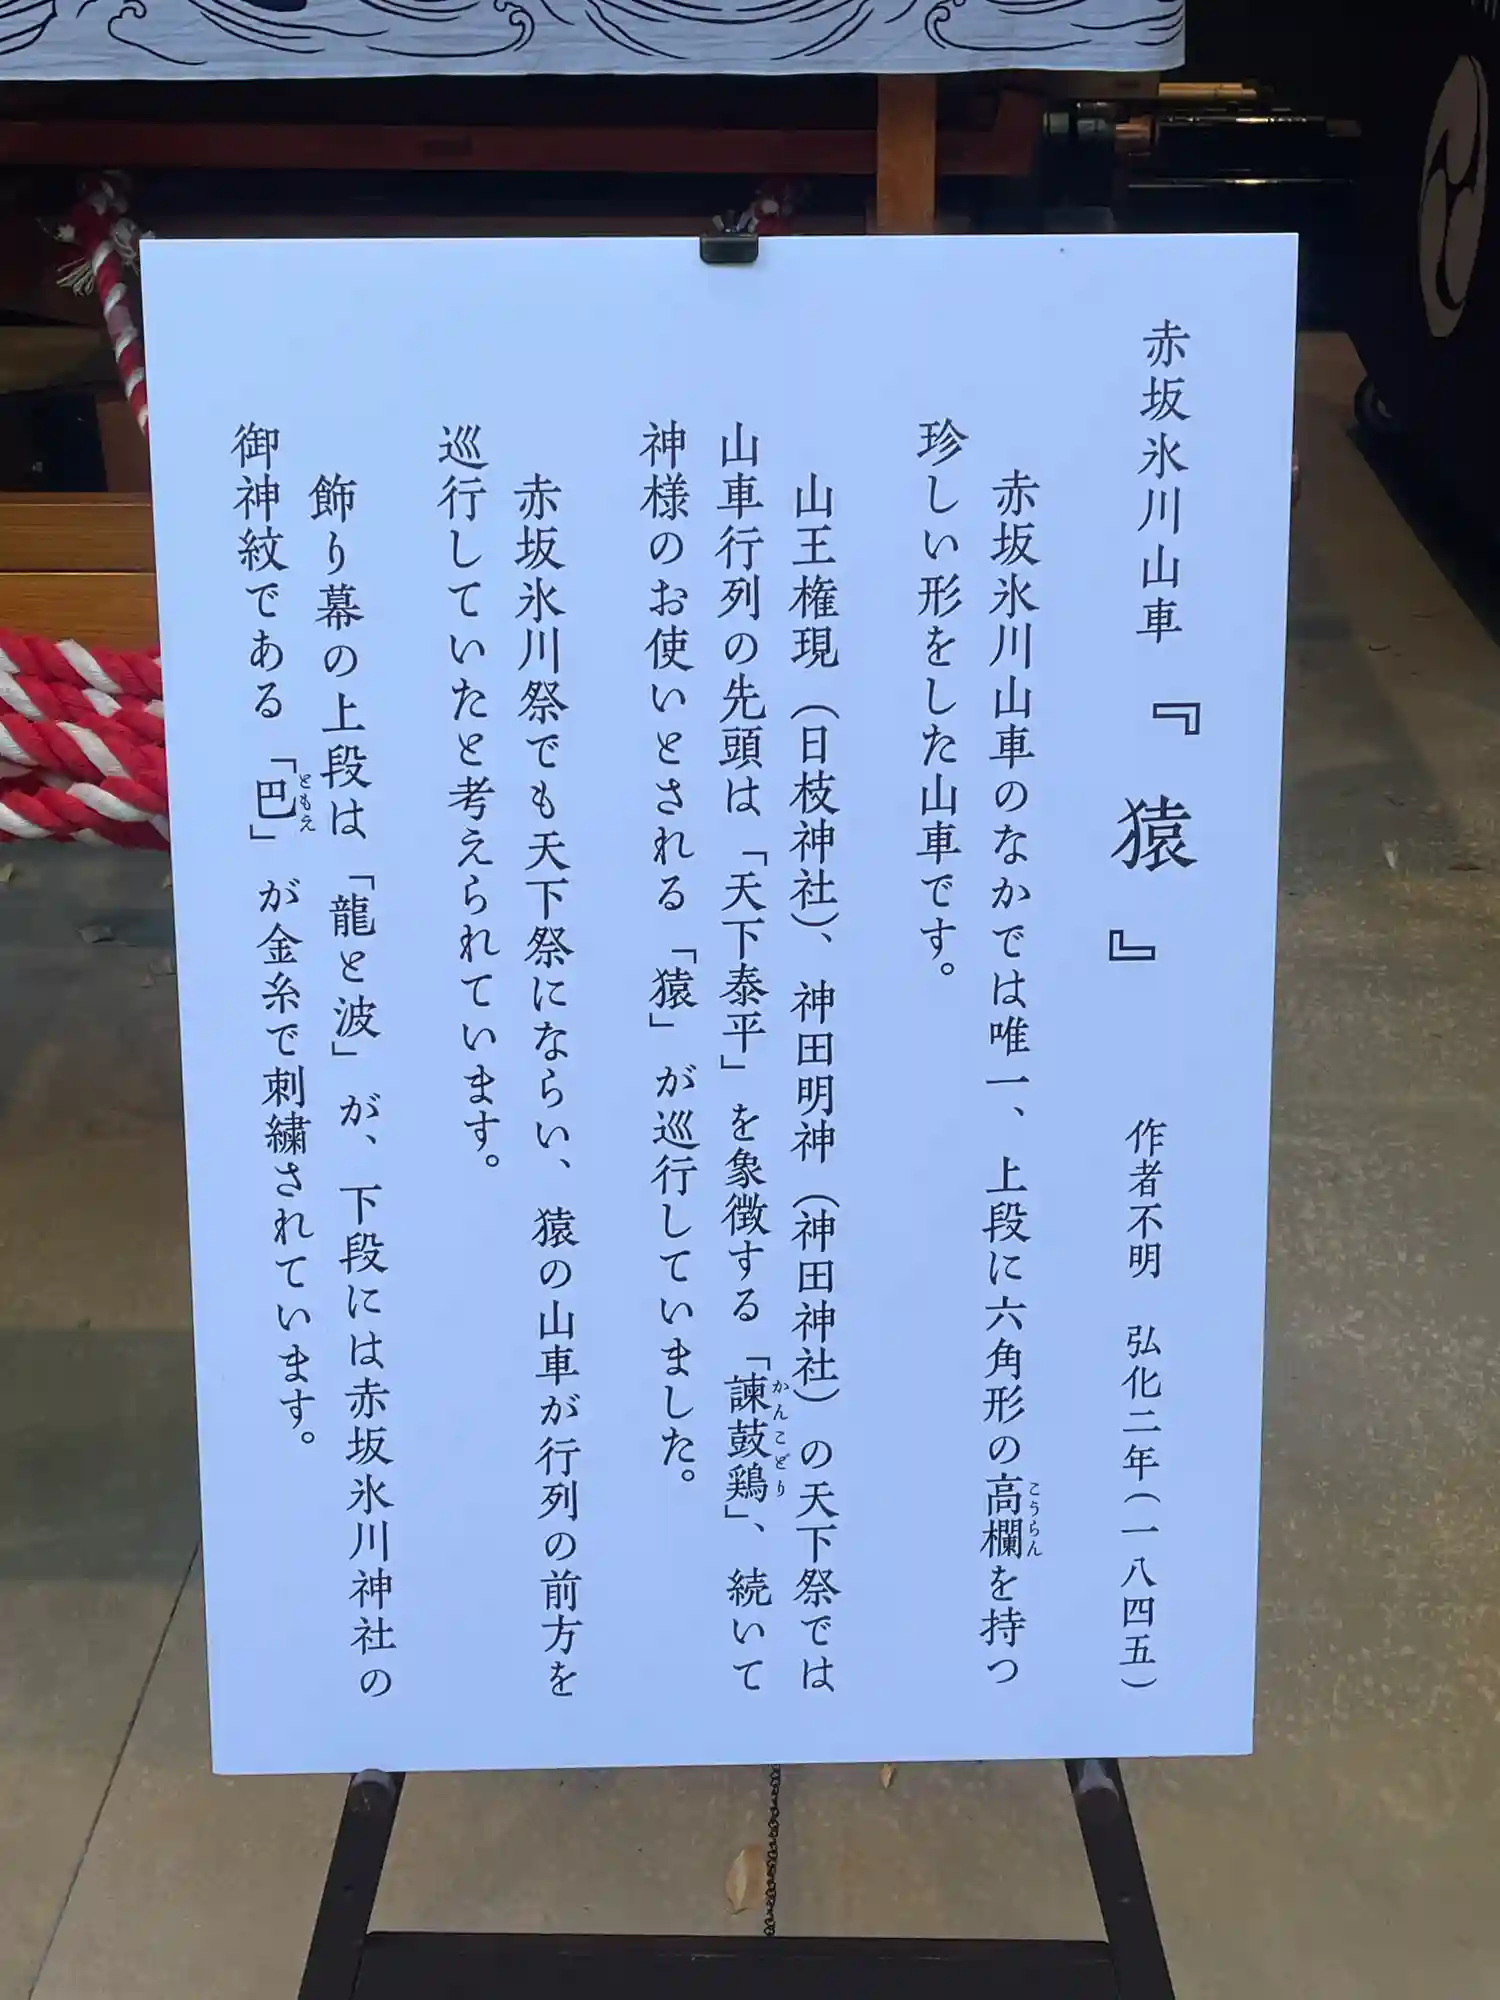 赤坂氷川山車『猿』 作者不明 弘化二年(一八四五)
赤坂氷川山車のなかでは唯一、上段に六角形の高欄を持つ
こうらん
珍しい形をした山車です。
山王権現(日枝神社)、神田明神(神田神社)の天下祭では
山車行列の先頭は「天下泰平」を象徴する「諫鼓鶏」、続いて
かんこどり
神様のお使いとされる「猿」が巡行していました。
赤坂氷川祭でも天下祭にならい、猿の山車が行列の前方を
巡行していたと考えられています。
飾り幕の上段は「龍と波」が、下段には赤坂氷川神社の
御神紋である「巴」が金糸で刺繍されています。
ともえ